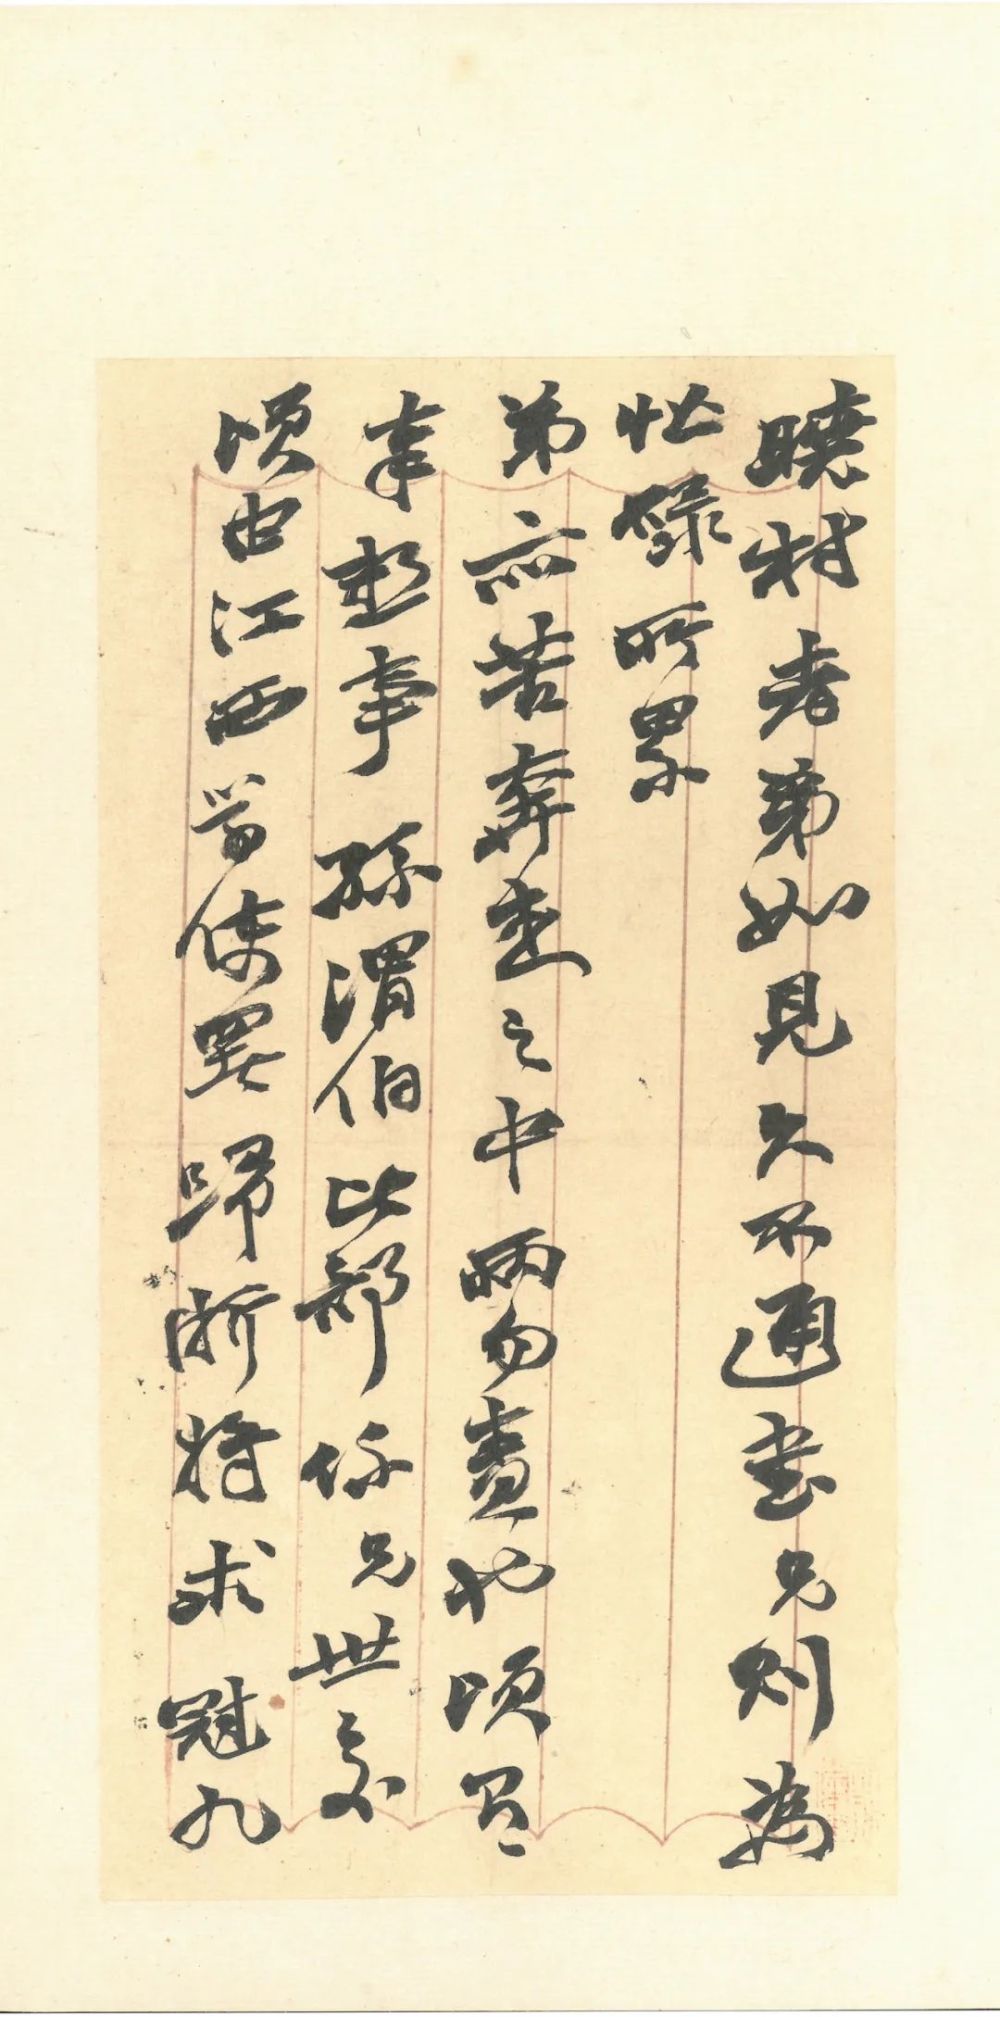 曉村老弟如見久不通書兄則為
忙碌所累
弟亦苦奔走之中兩勿責也頃有
奉懇事孫渭伯比部係兄世交
頃由江西學使署歸浙特求冠九